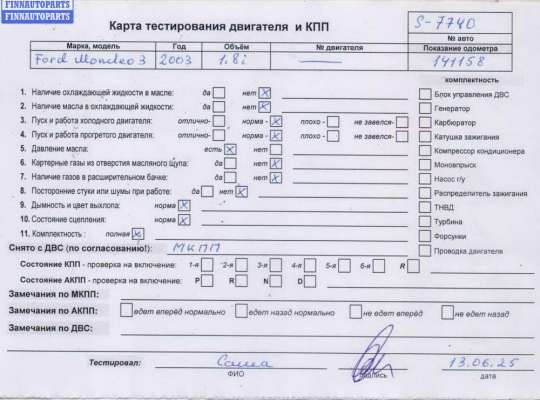 FINNAUTOPARTS
FINNAUTOPARTS
Карта тестирования двигателя и КПП
S-7740
№ авто
Марка, модель Год Объём № двигателя Показание одометра
Ford Mondeo 3 2003 1.8i — 141158
комплектность
1. Наличие охлаждающей жидкости в масле: да нет X
Блок управления ДВС
2. Наличие масла в охлаждающей жидкости: да нет X
Генератор
3. Пуск и работа холодного двигателя: отлично- норма - X плохо - не завелся-
Карбюратор
4. Пуск и работа прогретого двигателя: отлично- норма - X плохо - не завелся-
Катушка зажигания
5. Давление масла: есть X нет
Компрессор кондиционера
6. Картерные газы из отверстия масляного щупа: да нет X
Моновпрыск
7. Наличие газов в расширительном бачке: да нет X
Насос г/у
8. Посторонние стуки или шумы при работе: да нет X
Распределитель зажигания
9. Дымность и цвет выхлопа: норма X
ТНВД
10. Состояние сцепления: норма X
Турбина
11. Комплектность : полная X
Форсунки
Снято с ДВС (по согласованию!): МКПП
Проводка двигателя
Состояние КПП - проверка на включение: 1-я 2-я 3-я 4-я 5-я 6-я R
Состояние АКПП - проверка на включение: P R N D
Замечания по МКПП:
Замечания по АКПП: едет вперёд нормально едет назад нормально не едет вперёд не едет назад
Замечания по ДВС:
Тестировал: Саша 13.06.25
ФИО подпись дата